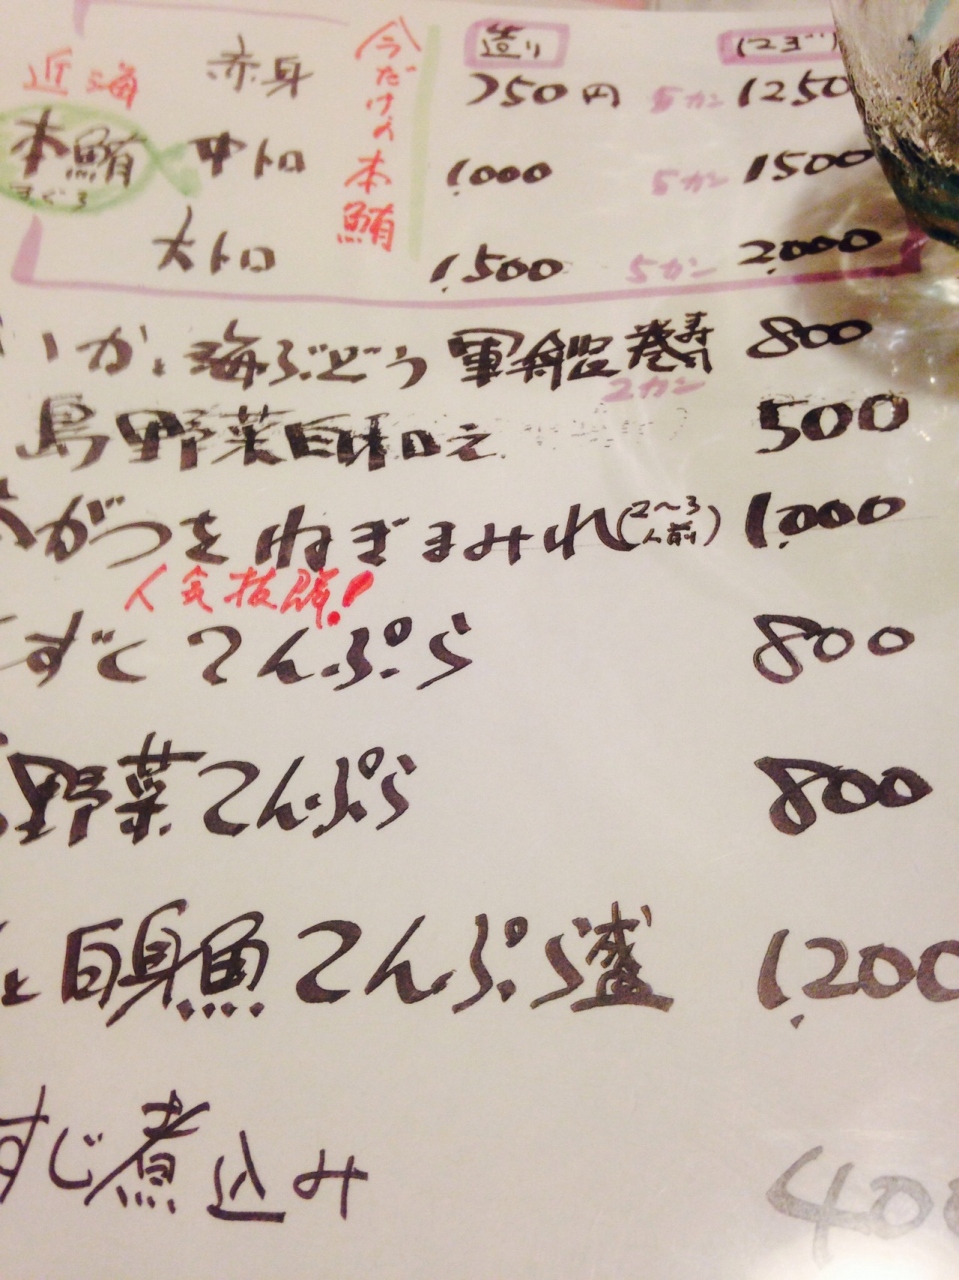 造り にぎり
近海 赤身 750円 5カン 1250
本鮪 まぐろ 中トロ 1,000 5カン 1500
大トロ 1,500 5カン 2,000
今だけの本鮪
いか、海ぶどう軍艦巻寿司 800
2カン
島野菜白和え 500
がつをねぎまみれ(2〜3人前) 1,000
人気抜群!
もずくてんぷら 800
野菜てんぷら 800
と白身魚てんぷら盛 1,200
すじ煮込み 400